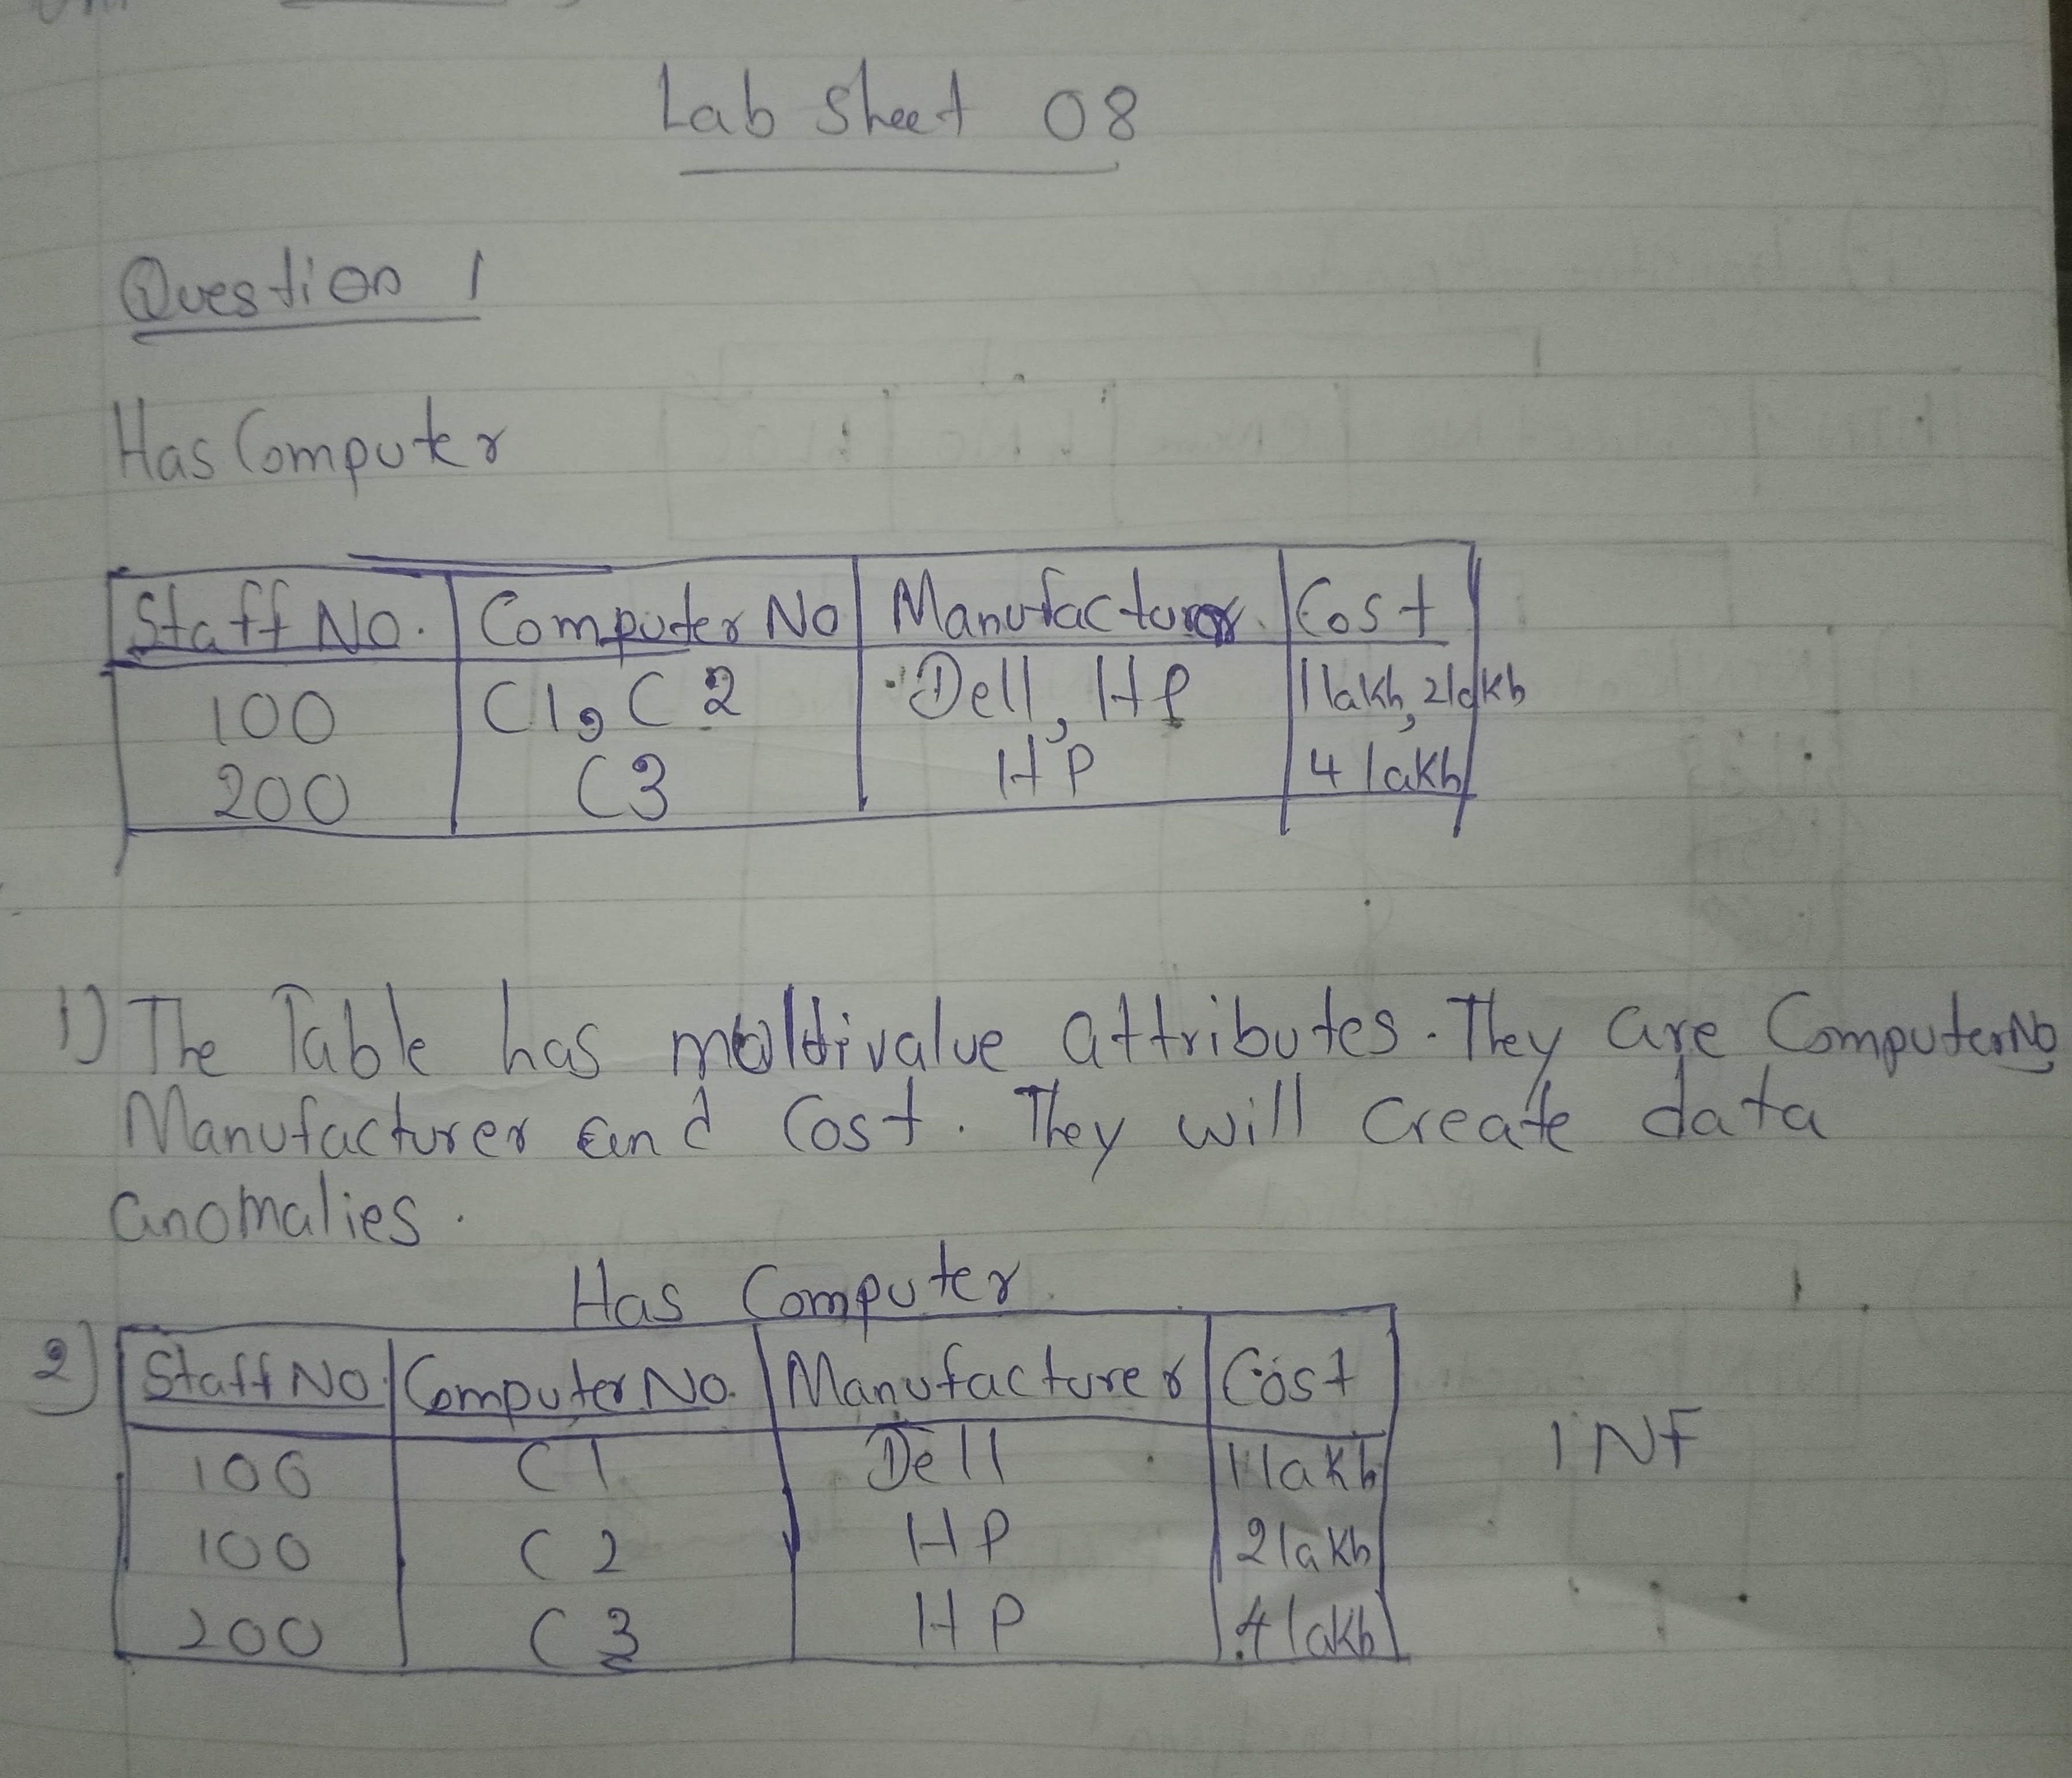 Lab Sheet 08
Question 1
Has Computer
Staff No. Computer No Manufacturer Cost
100 C1, C2 Dell, HP 1lakh, 2lakh
200 C3 HP 4 lakh
1) The Table has multivalue attributes. They are ComputerNo,
Manufacturer and Cost. They will create data
anomalies.
Has Computer
2) Staff No. Computer No. Manufacturer Cost
100 C1 Dell 1lakh
100 C2 HP 2lakh
200 C3 HP 4lakh
1NF